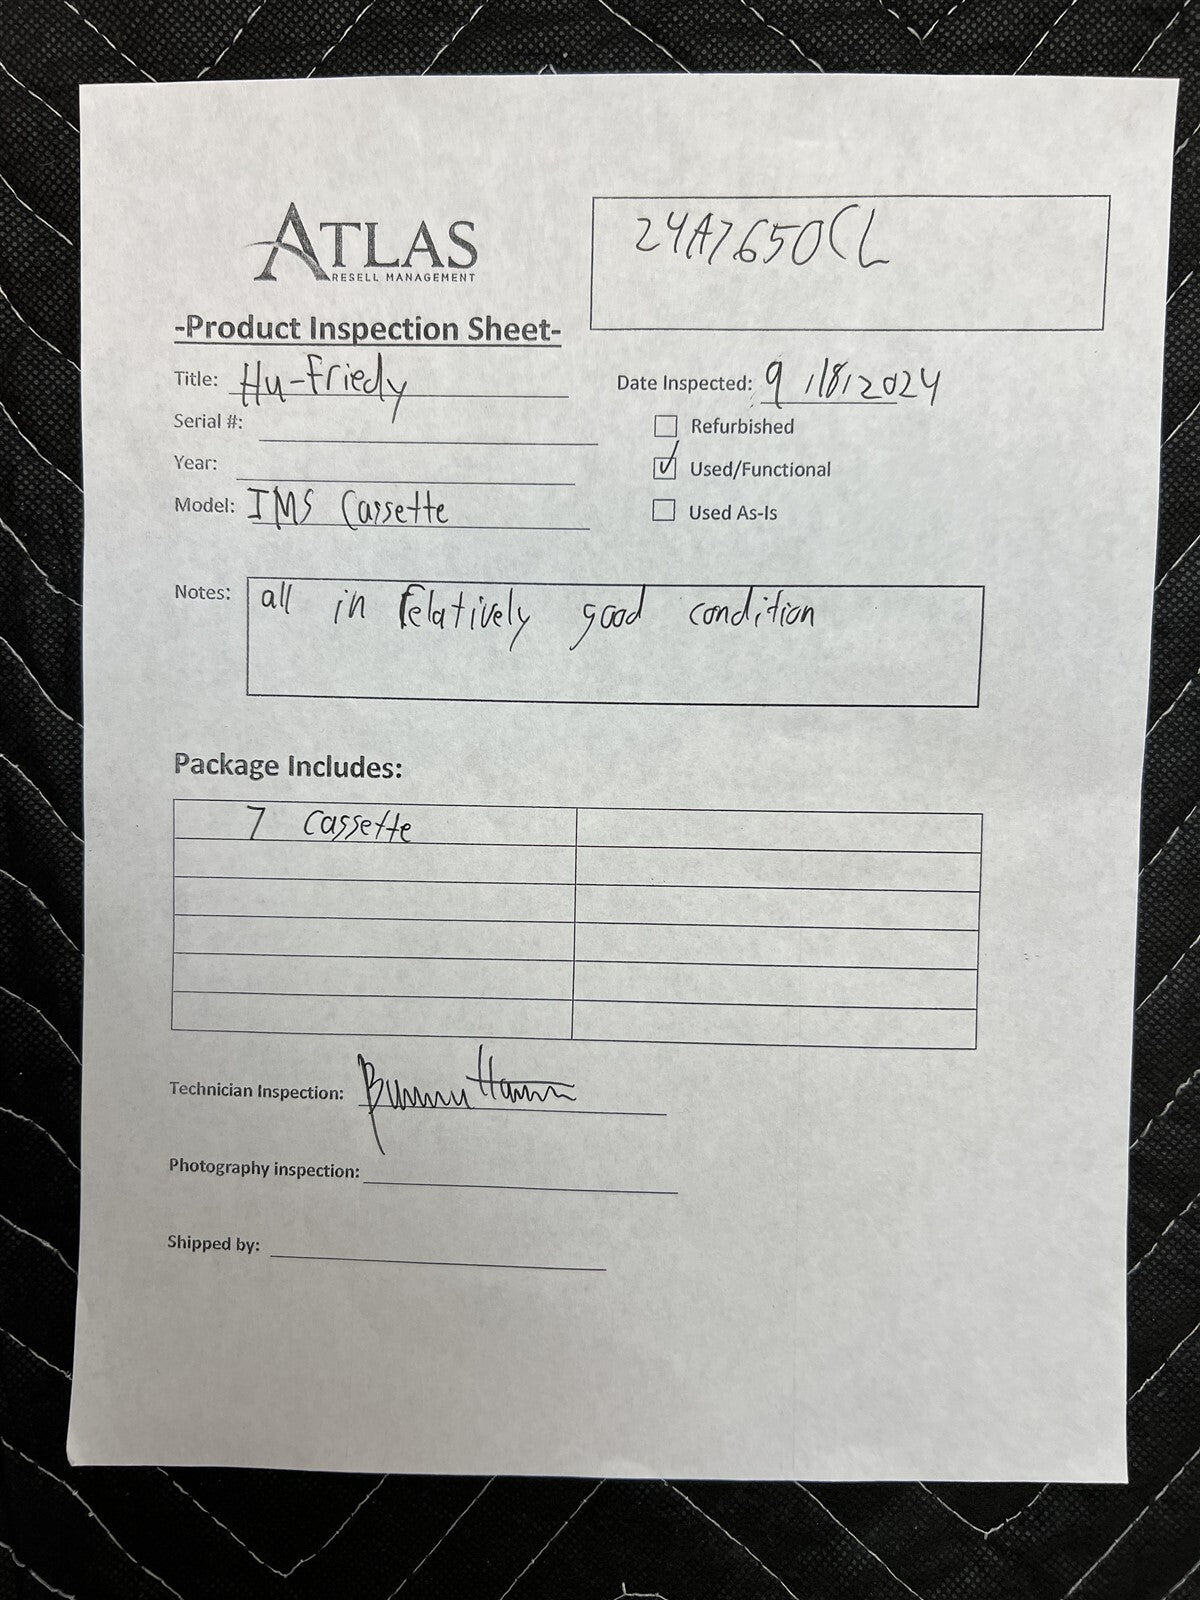 ATLAS
RESELL MANAGEMENT
24A7650CL
-Product Inspection Sheet-
Title: Hu-Friedy
Date Inspected: 9/18/2024
Serial #:
Refurbished
Year:
Used/Functional
Model: IMS Cassette
Used As-Is
Notes: all in relatively good condition
Package Includes:
7 Cassette
Technician Inspection:
Photography inspection:
Shipped by: